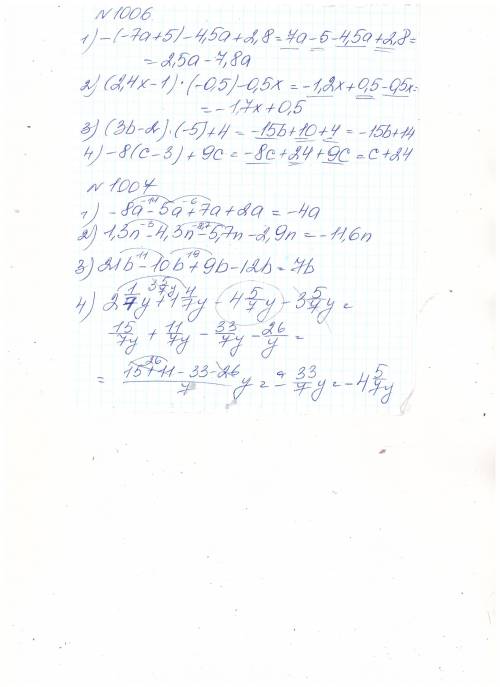 №1006
1) -(-7a+5)-4,5a+2,8=7a-5-4,5a+2,8=
=2,5a-7,8a
2) (2,4x-1)·(-0,5)-0,5x=-1,2x+0,5-0,5x=
=-1,7x+0,5
3) (3b-2)·(-5)+4=-15b+10+4=-15b+14
4) -8(c-3)+9c=-8c+24+9c=c+24
№1007
1) -8a-5a+7a+2a=-4a
2) 1,3n-4,3n-5,7n-2,9n=-11,6n
3) 21b-10b+9b-12b=7b
4) 2 1/7 y+1 4/7 y-4 5/7 y-3 5/7 y=
15/7 y+11/7 y-33/7 y-26/y=
=(15+11-33-26)/7 y=-33/7 y=-4 5/7 y